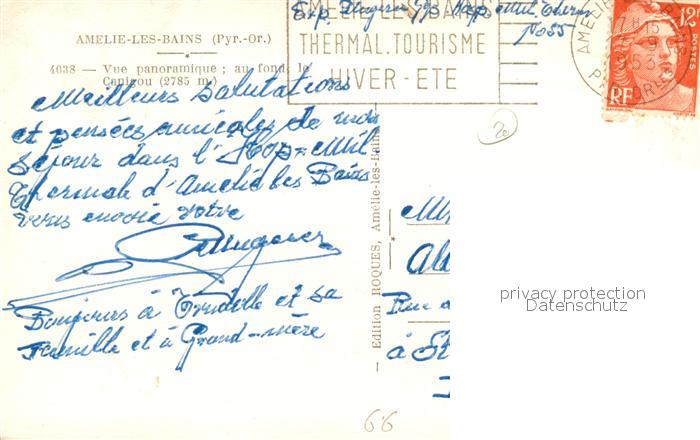 AMELIE-LES-BAINS (Pyr.-Or.)
4038 — Vue panoramique ; au fond, le
Canigou (2785 m.)
AMELIE-LES-BAINS
THERMAL.TOURISME
HIVER - ETE
Exp. Hop. Mil. Therm
No 55
AMELIE
7H15
9
1953
PYR. ORles
12F
POSTES
RF
Meilleurs salutations
et pensées amicales de mon
séjour dans l'Hop-Mil
Thermale d'Amelie les Bains
vous envoie votre
Bonjours à et sa
famille et à Grand-mère
Edition ROQUES, Amélie-les-Bains
Rue
à St
privacy protection
Datenschutz
20
66